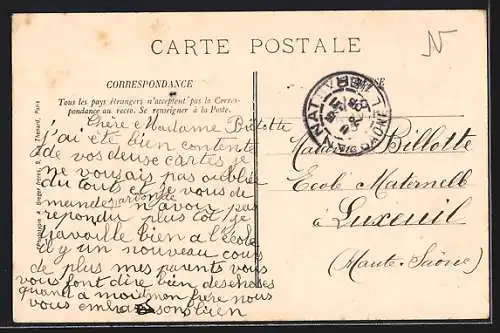 CARTE POSTALE
N
CORRESPONDANCE
Tous les pays étrangers n'acceptent pas la Corres-
pondance au recto. Se renseigner à la Poste.
Chère Madame Billotte
j'ai été bien contente
de vos deuse cartes je
ne vousais pas oublié
du tout et je vous de
mande pardonde
n'avoir pas
répondu plus tôt je
travaille bien a l'école
il y un nouveau cour
de plus mes parents vous
vous font dire bien des choses
quand a moi mon frère nous
vous embrassons bien
Billotte
École Maternelle
à Luxeuil
(Haute-Saône)